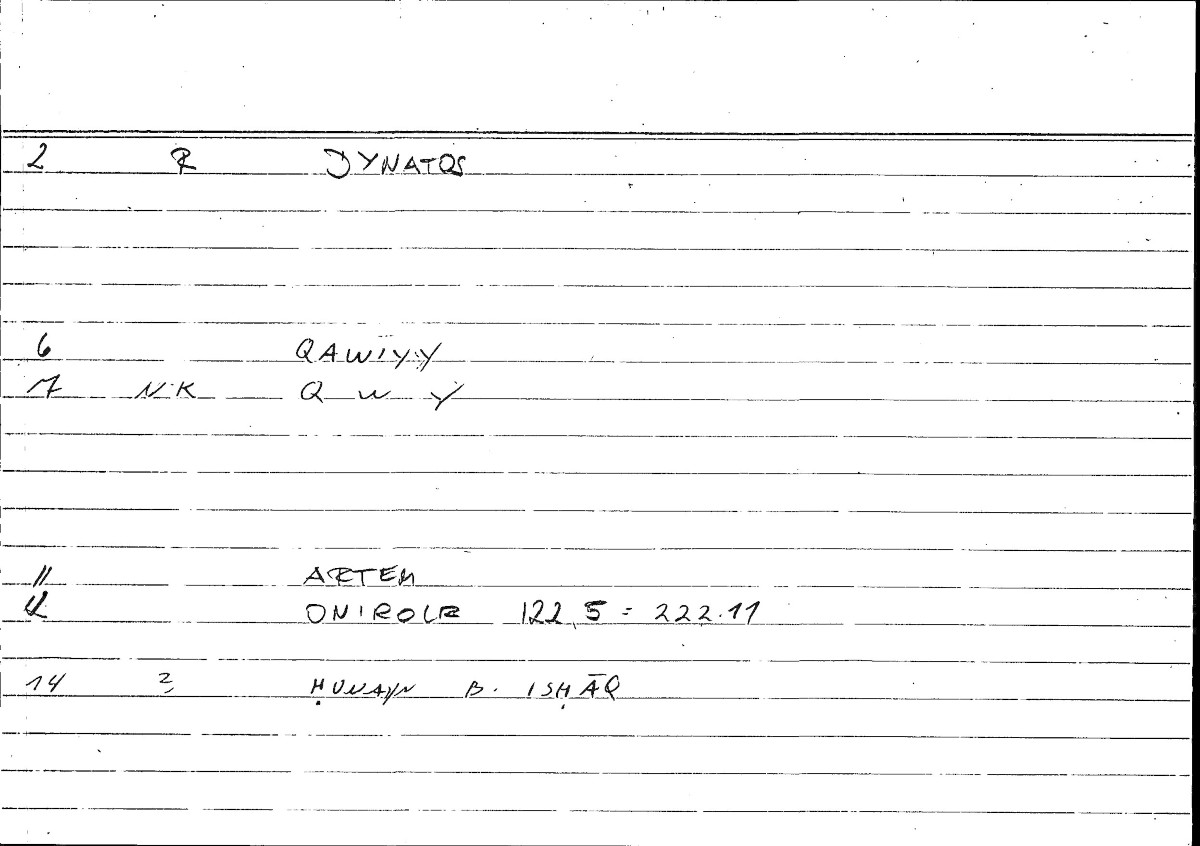 2 R DYNATOS
6 QAWIYY
7 NK Q W Y
11 ARTEM
12 ONIROCR 122,5 = 222.11
14 2 ḤUNAYN B. ISḤĀQ